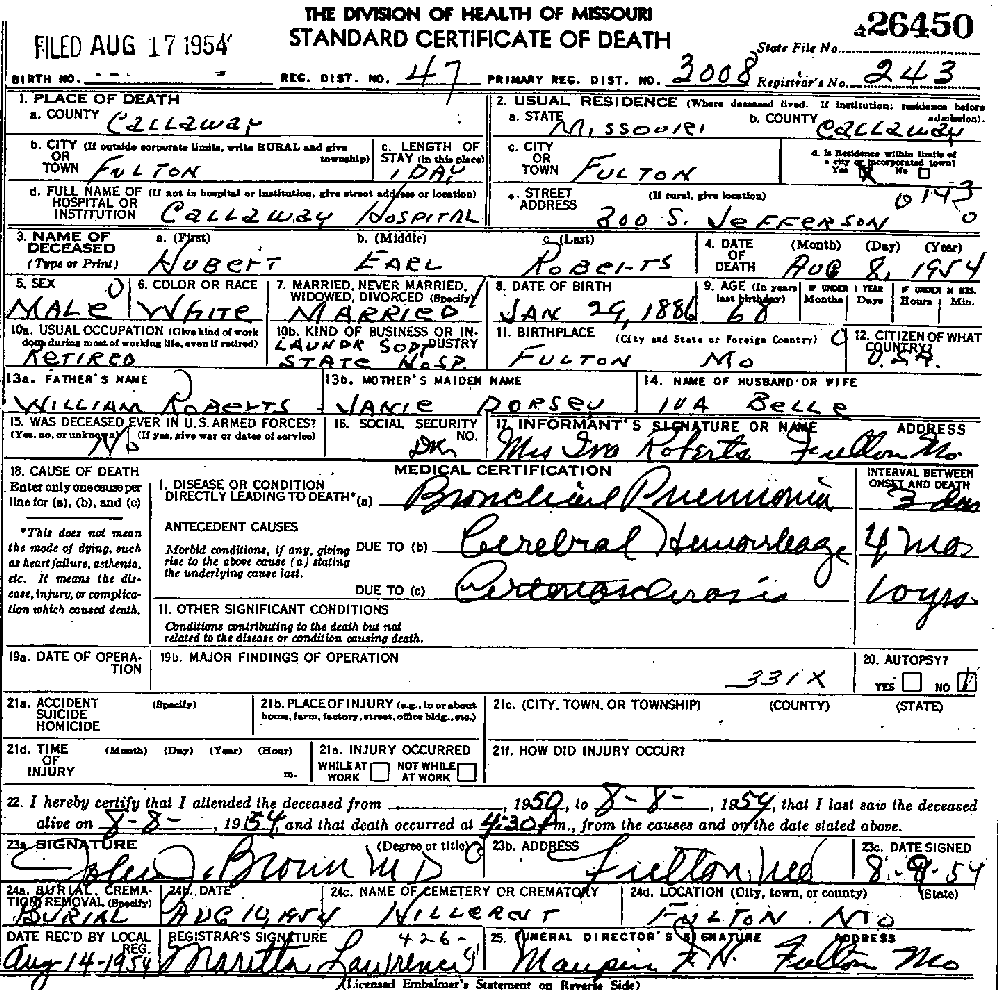 THE DIVISION OF HEALTH OF MISSOURI
STANDARD CERTIFICATE OF DEATH
FILED AUG 17 1954
State File No. 26450
BIRTH NO. REG. DIST. NO. 47 PRIMARY REG. DIST. NO. 3008 Registrar's No. 243
1. PLACE OF DEATH
a. COUNTY Callaway
2. USUAL RESIDENCE (Where deceased lived. If institution: residence before admission).
a. STATE Missouri b. COUNTY Callaway
b. CITY (If outside corporate limits, write RURAL and give township) OR TOWN Fulton
c. LENGTH OF STAY (in this place) 1 DAY
c. CITY OR TOWN Fulton
d. Is Residence within limits of a city or incorporated town? Yes No
d. FULL NAME OF (If not in hospital or institution, give street address or location) HOSPITAL OR INSTITUTION Callaway Hospital
e. STREET ADDRESS (If rural, give location) 300 S. Jefferson 0143 0
3. NAME OF DECEASED (Type or Print)
a. (First) Hubert b. (Middle) Earl c. (Last) Roberts
4. DATE OF DEATH (Month) (Day) (Year) Aug 8, 1954
5. SEX Male
6. COLOR OR RACE White
7. MARRIED, NEVER MARRIED, WIDOWED, DIVORCED (Specify) MARRIED
8. DATE OF BIRTH Jan 29, 1886
9. AGE (In years last birthday) 68 IF UNDER 1 YEAR Months Days IF UNDER 24 HRS. Hours Min.
10a. USUAL OCCUPATION (Give kind of work done during most of working life, even if retired) Retired
10b. KIND OF BUSINESS OR INDUSTRY State Hosp.
11. BIRTHPLACE (City and State or Foreign Country) Fulton Mo
12. CITIZEN OF WHAT COUNTRY? U.S.A.
13a. FATHER'S NAME William Roberts
13b. MOTHER'S MAIDEN NAME Janie Dorsey
14. NAME OF HUSBAND OR WIFE Iva Belle
15. WAS DECEASED EVER IN U.S. ARMED FORCES? (Yes, no, or unknown) (If yes, give war or dates of service) No
16. SOCIAL SECURITY NO. DK
17. INFORMANT'S SIGNATURE OR NAME ADDRESS
Mrs Iva Roberts Fulton Mo
18. CAUSE OF DEATH
Enter only one cause per line for (a), (b), and (c)
*This does not mean the mode of dying, such as heart failure, asthenia, etc. It means the disease, injury, or complication which caused death.
MEDICAL CERTIFICATION
INTERVAL BETWEEN ONSET AND DEATH
I. DISEASE OR CONDITION DIRECTLY LEADING TO DEATH* (a) Bronchial Pnemonia 3 das
ANTECEDENT CAUSES
Morbid conditions, if any, giving rise to the above cause (a) stating the underlying cause last.
DUE TO (b) Cerebral Hemorleage 4 mos
DUE TO (c) Arteriosclerosis 10 yrs
II. OTHER SIGNIFICANT CONDITIONS
Conditions contributing to the death but not related to the disease or condition causing death.
19a. DATE OF OPERATION
19b. MAJOR FINDINGS OF OPERATION
331X
20. AUTOPSY? YES NO
21a. ACCIDENT SUICIDE HOMICIDE (Specify)
21b. PLACE OF INJURY (e.g., in or about home, farm, factory, street, office bldg., etc.)
21c. (CITY, TOWN, OR TOWNSHIP) (COUNTY) (STATE)
21d. TIME OF INJURY (Month) (Day) (Year) (Hour) m.
21e. INJURY OCCURRED WHILE AT WORK NOT WHILE AT WORK
21f. HOW DID INJURY OCCUR?
22. I hereby certify that I attended the deceased from , 1950, to 8-8-, 1954, that I last saw the deceased
alive on 8-8-, 1954 and that death occurred at 4:30 P m., from the causes and on the date stated above.
23a. SIGNATURE (Degree or title) John J. Brown MD
23b. ADDRESS Fulton Mo
23c. DATE SIGNED 8-9-54
24a. BURIAL, CREMATION, REMOVAL (Specify) Burial
24b. DATE Aug 10, 1954
24c. NAME OF CEMETERY OR CREMATORY Hillcrest
24d. LOCATION (City, town, or county) (State) Fulton Mo
DATE REC'D BY LOCAL REG. Aug 14-1954
REGISTRAR'S SIGNATURE 426- Maretta Lawrence
25. FUNERAL DIRECTOR'S SIGNATURE ADDRESS
Maupin F.H. Fulton Mo
(Licensed Embalmer's Statement on Reverse Side)